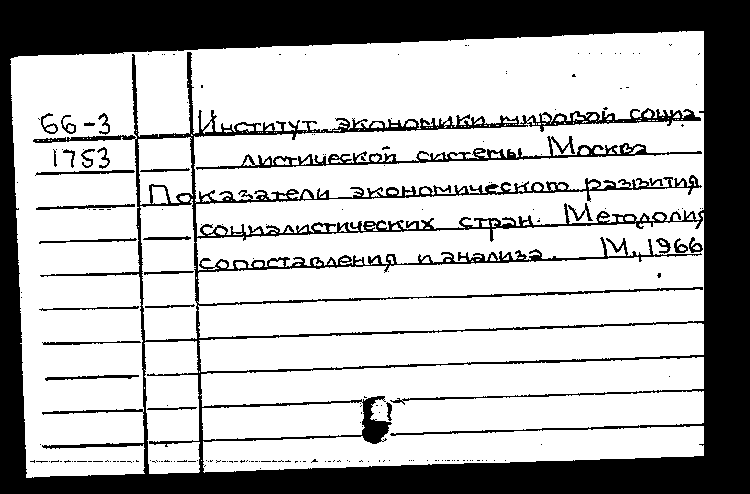 66-3 Институт экономики мировой социа-
1753 листической системы. Москва
Показатели экономического развития
социалистических стран. Методолия
сопоставления и анализа. М., 1966